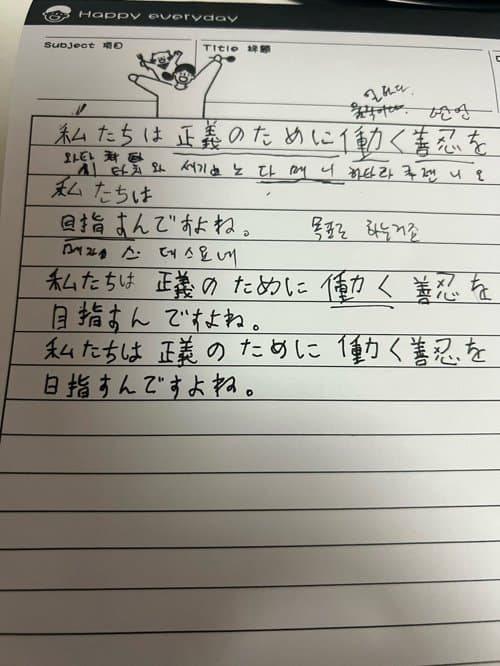 Happy everyday
Subject 項目
Title 标题
일하다.
私たちは正義のために働く善忍を
와타 시 타치 와 세기 노 다 메 니 하타라 쿠 젠 니 오
私たちは
目指すんですよね。 목표로 하는거죠
메자 스 ㄴ 데 스 요 네
私たちは 正義のために 働く 善忍を
目指すんですよね。
私たちは 正義のために 働く善忍を
目指すんですよね。